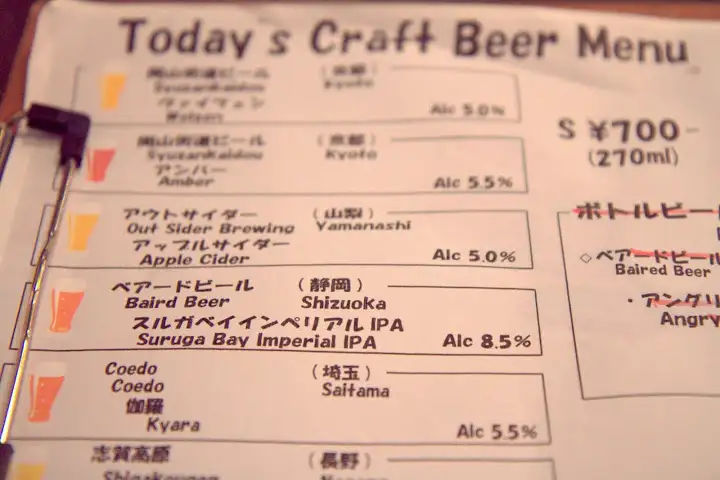 Today's Craft Beer Menu
周山街道ビール (京都)
SyuzanKaidou Kyoto
ヴァイツェン
Weizen Alc 5.0%
周山街道ビール (京都)
SyuzanKaidou Kyoto
アンバー
Amber Alc 5.5%
アウトサイダー (山梨)
Out Sider Brewing Yamanashi
アップルサイダー
Apple Cider Alc 5.0%
ベアードビール (静岡)
Baird Beer Shizuoka
スルガベイインペリアル IPA
Suruga Bay Imperial IPA Alc 8.5%
Coedo (埼玉)
Coedo Saitama
伽羅
Kyara Alc 5.5%
志賀高原 (長野)
S ¥700-
(270ml)
ボトルビール
◇ベアードビール
Baired Beer
・アングリ
Angry